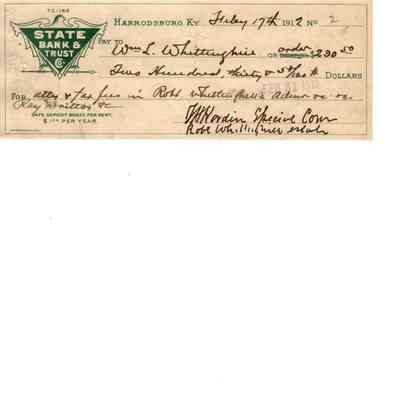 73-166
STATE BANK & TRUST Co.
HARRODSBURG, KY. Feby 17th 1912 No 2
PAY TO Wm L. Whittinghill OR order $230 50
Two Hundred, thirty & 50/100 DOLLARS
FOR atty & tax fees in Robt Whittinghill's Admr vs
Ray Whitt &c
SAFE DEPOSIT BOXES FOR RENT.
$1.00 PER YEAR
Special Comr
Robt